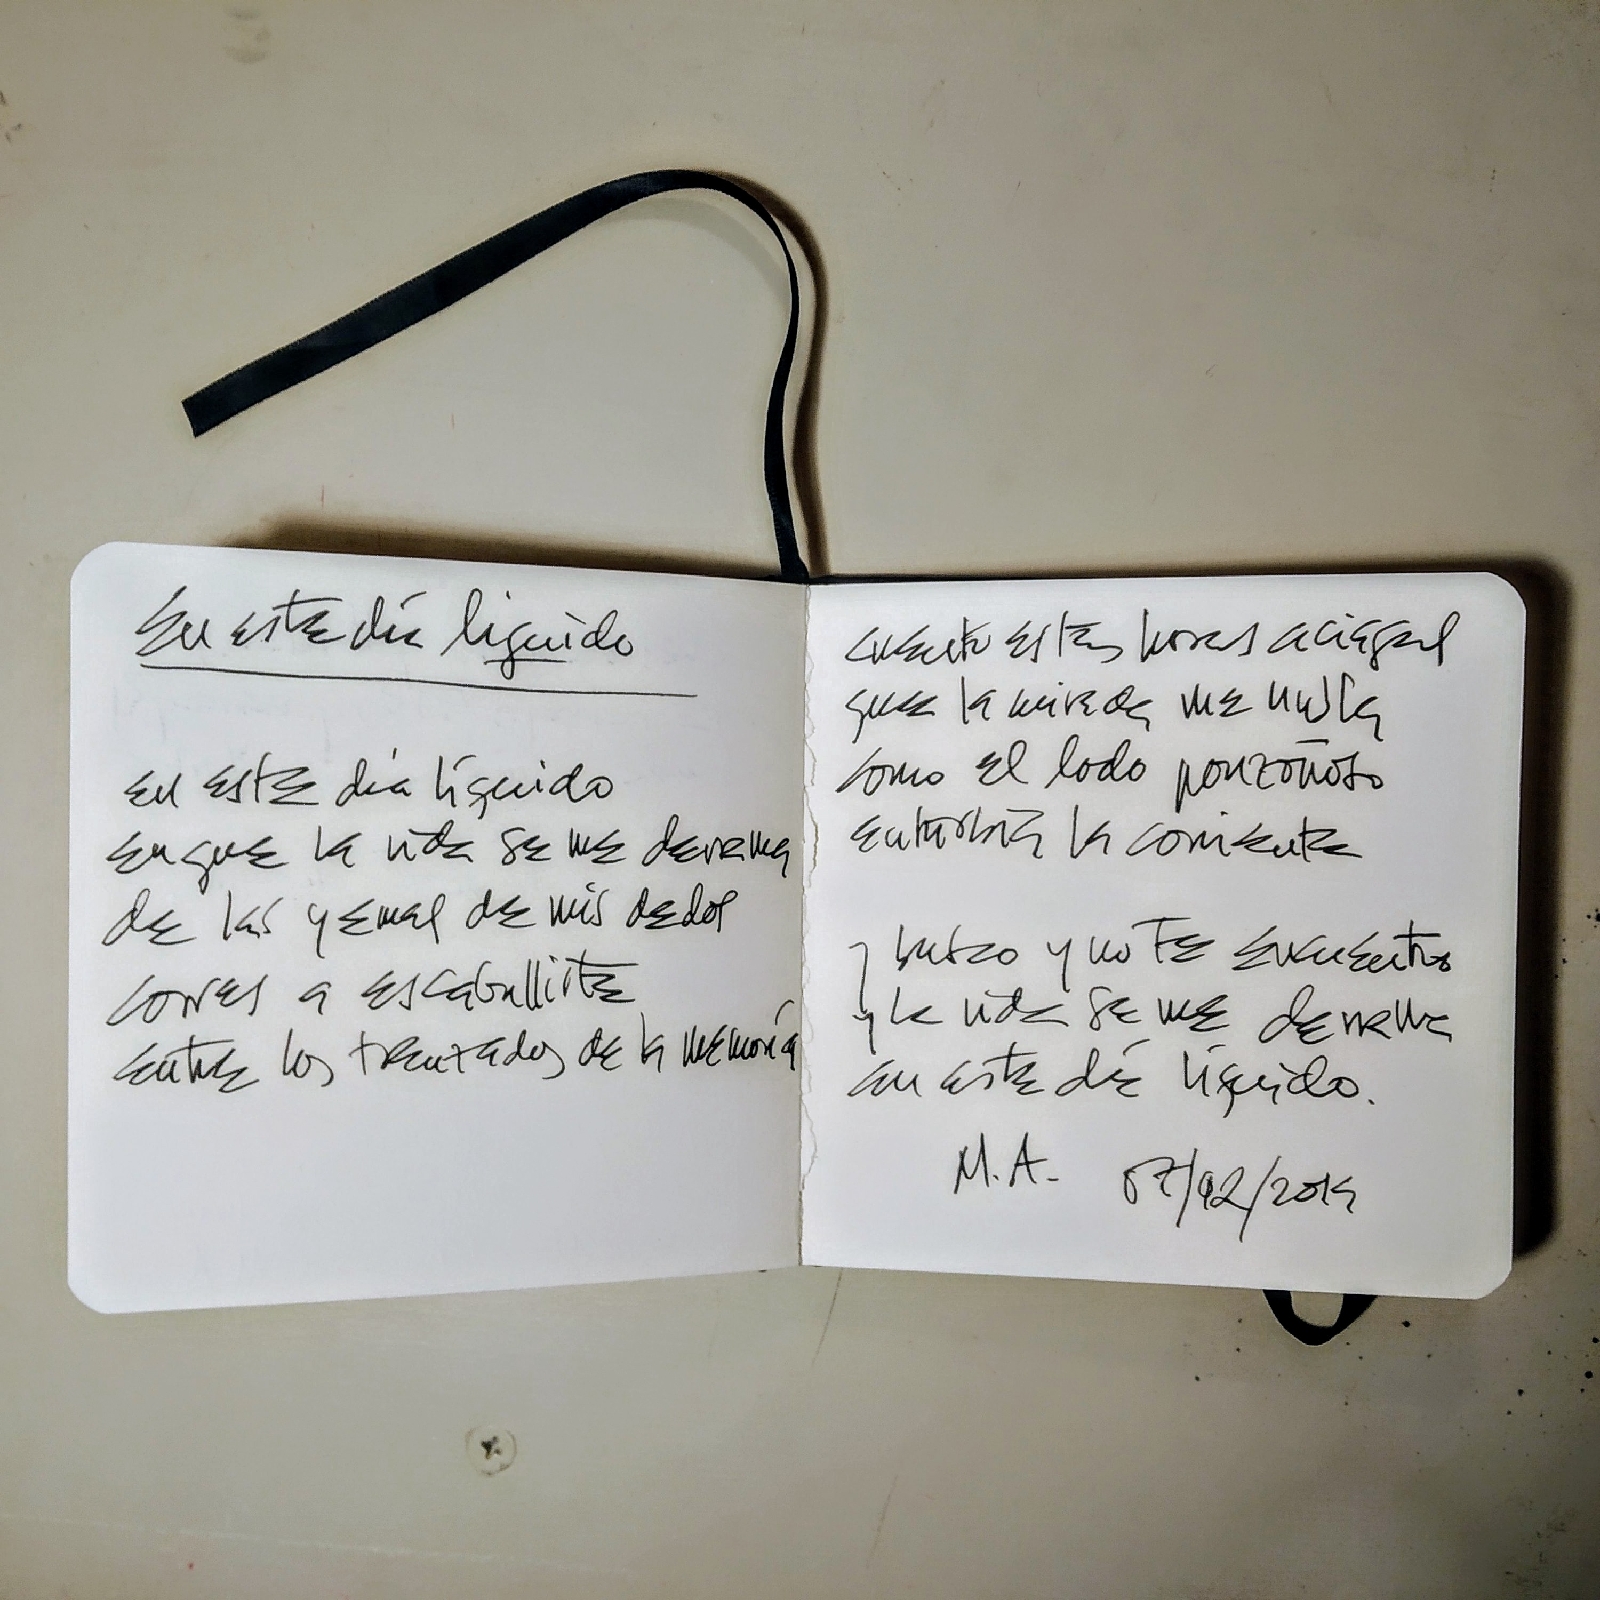 En este día líquido
en este día líquido
en que la vida se me derrama
de las yemas de mis dedos
corres a escabullirte
entre los trenzados de la memoria
cuento estas horas aciagas
que la mirada me nubla
como el lodo ponzoñoso
enturbia la corriente
y busco y no te encuentro
y la vida se me derrama
en este día líquido.
M.A. 07/02/2019